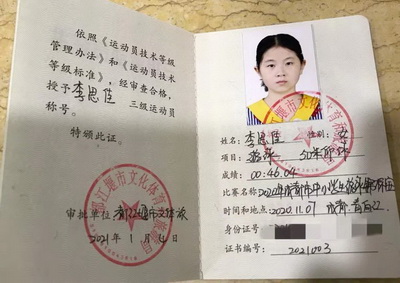 依照《运动员技术等级
管理办法》和《运动员技术
等级标准》,经审查合格,
授予 李思佳 三级运动员
称号。
特颁此证。
审批单位 都江堰市文体旅
2021年 1月 4日
姓名:李思佳 性别:女
项目:游泳 50米仰泳
成绩:00:46.04
比赛名称:2020年成都市中小学生
时间和地点:2020.11.07 成都
身份证号
证书编号:2021003